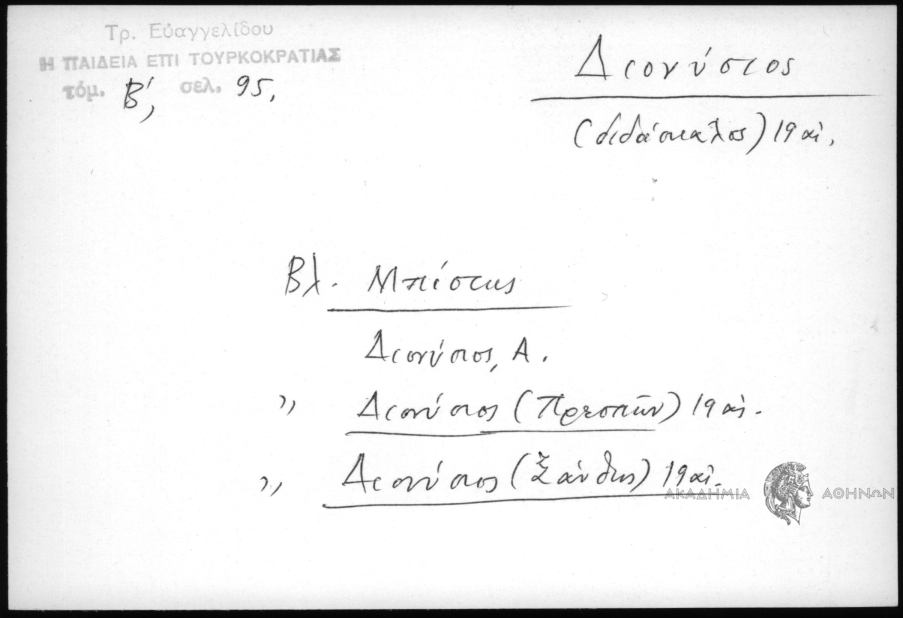 Τρ. Εὐαγγελίδου
Η ΠΑΙΔΕΙΑ ΕΠΙ ΤΟΥΡΚΟΚΡΑΤΙΑΣ
τόμ. Β', σελ. 95.
Διονύσιος
(διδάσκαλος) 19 αἰ.
Βλ. Μπέστης
Διονύσιος, Α.
,, Διονύσιος (Πρεσπῶν) 19 αἰ.
,, Διονύσιος (Ξάνθης) 19 αἰ.
ΑΚΑΔΗΜΙΑ ΑΘΗΝΩΝ